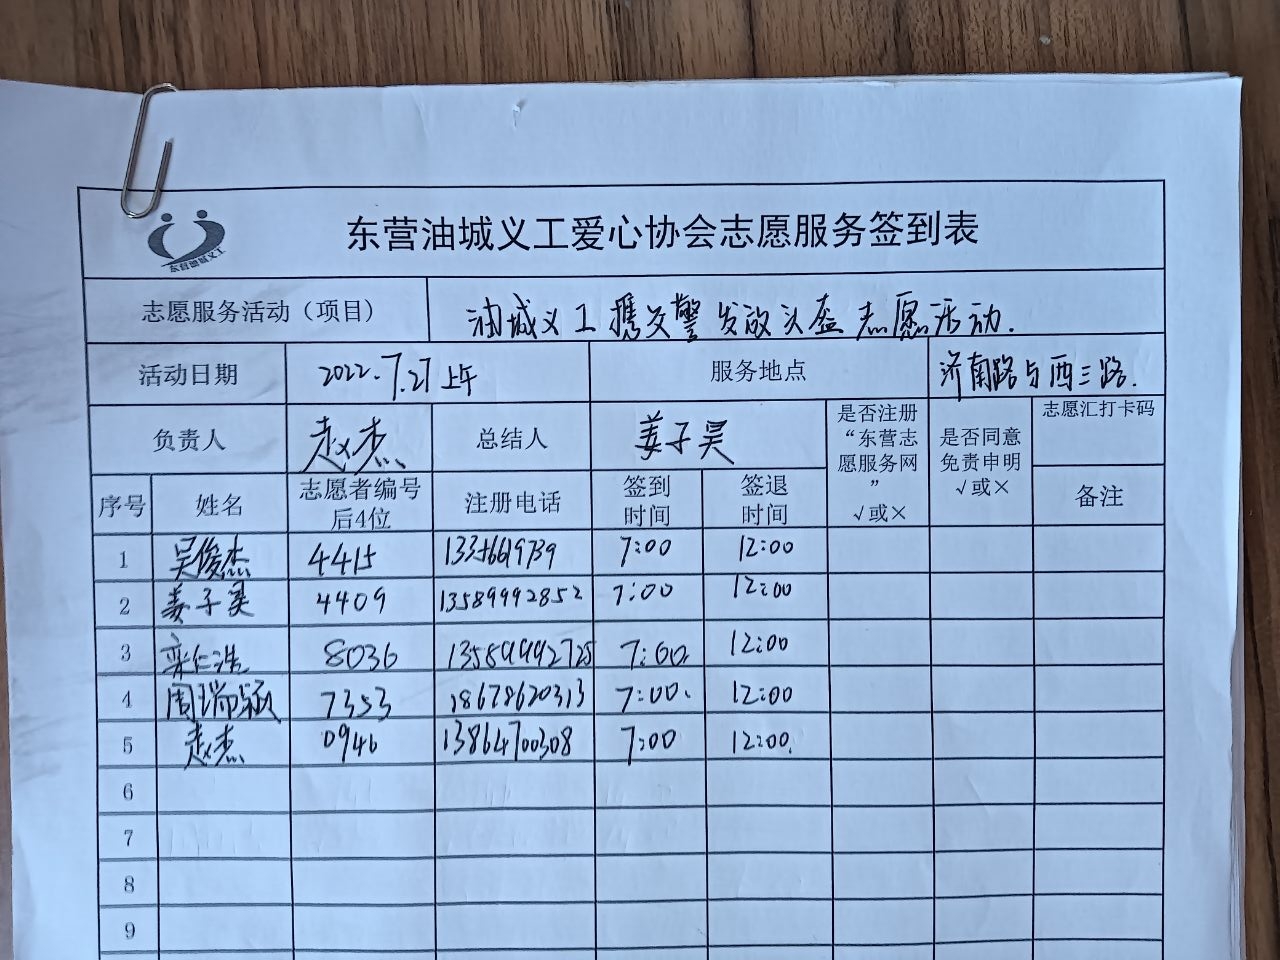 东营油城义工
东营油城义工爱心协会志愿服务签到表
志愿服务活动（项目） 油城义工携交警发放头盔志愿活动.
活动日期 2022.7.27上午 服务地点 济南路与西三路.
负责人 赵杰 总结人 姜子昊 是否注册“东营志愿服务网” √或× 是否同意免责申明 √或× 志愿汇打卡码
序号 姓名 志愿者编号后4位 注册电话 签到时间 签退时间 备注
1 吴俊杰 4415 7:00 12:00
2 姜子昊 4409 13589992852 7:00 12:00
3 栾仁浩 8036 13589992725 7:00. 12:00
4 周瑞颖 7353 18678620313 7:00. 12:00
5 赵杰 0946 13864700308 7:00 12:00.
6
7
8
9